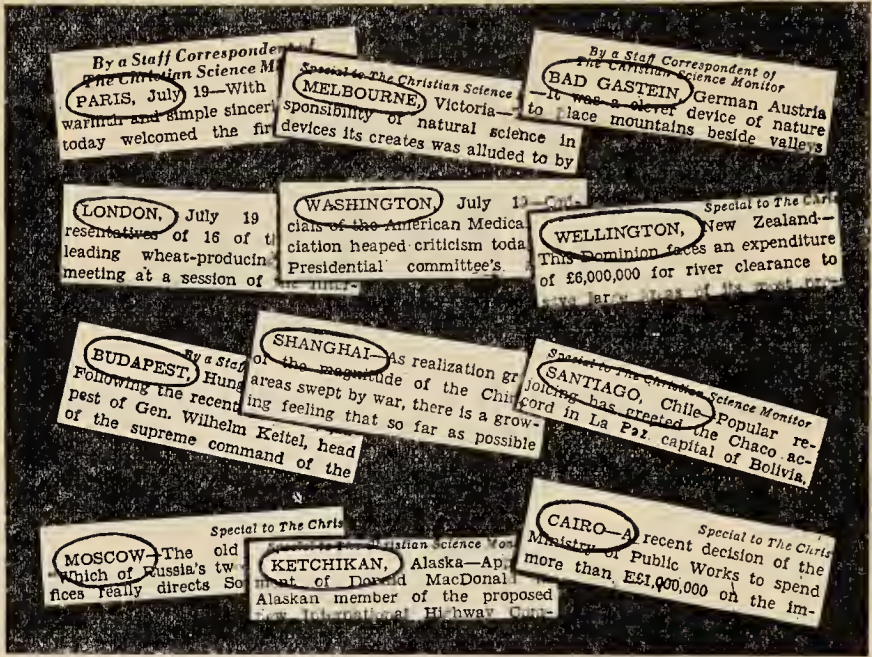 By a Staff Correspondent of
The Christian Science M
PARIS, July 19—With
warmth and simple sinceri
today welcomed the fir
Special to The Christian Science
MELBOURNE, Victoria—
sponsibility of natural science in
devices its creates was alluded to by
By a Staff Correspondent of
The Christian Science Monitor
BAD GASTEIN, German Austria
—It was a clever device of nature
to place mountains beside valleys
LONDON, July 19
resentatives of 16 of t
leading wheat-producin
meeting at a session of
WASHINGTON, July 19—
cials of the American Medica
ciation heaped criticism toda
Presidential committee's
Special to The Chris
WELLINGTON, New Zealand—
This Dominion faces an expenditure
of £6,000,000 for river clearance to
By a Staf
BUDAPEST, Hung
Following the recent
pest of Gen. Wilhelm Keitel, head
of the supreme command of the
SHANGHAI—As realization gr
of the magnitude of the Chin
areas swept by war, there is a grow-
ing feeling that so far as possible
Special to The Christian Science Monitor
SANTIAGO, Chile—Popular re-
joicing has greeted the Chaco ac-
cord in La Paz, capital of Bolivia,
Special to The Chris
MOSCOW—The old
Which of Russia's tw
fices really directs So
Special to The Christian Science Mon
KETCHIKAN, Alaska—Ap
ment of Donald MacDonal
Alaskan member of the proposed
International Highway
Special to The Chris
CAIRO—A recent decision of the
Ministry of Public Works to spend
more than E£1,000,000 on the im-